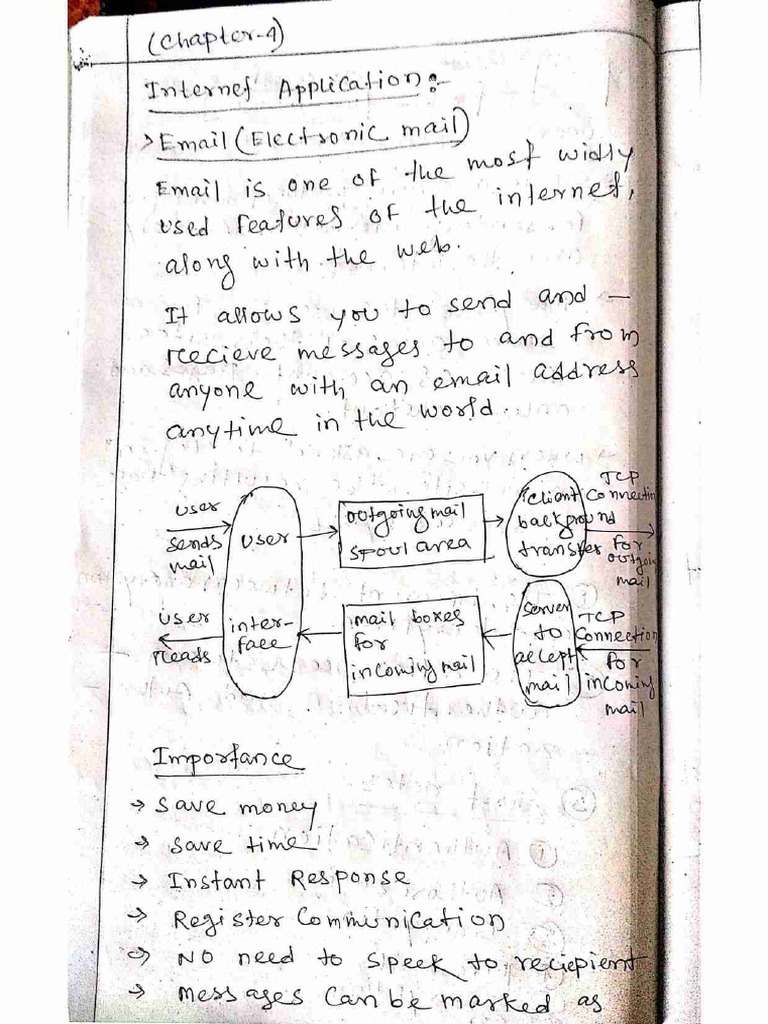 (Chapter-4)
Internet Application:-
> Email (Electronic mail)
Email is one of the most widly
used features of the internet,
along with the web.
It allows you to send and -
recieve messages to and from
anyone with an email address
anytime in the world.
user
sends
mail
user
reads
user
inter-
face
outgoing mail
spoul area
client
background
transfer
TCP
Connectin
for
outgoin
mail
mail boxes
for
incoming mail
server
to
accept
mail
TCP
Connection
for
incoming
mail
Importance
→ save money
→ save time
→ Instant Response
→ Register Communication
→ NO need to speek to reciepient
→ messages can be marked as